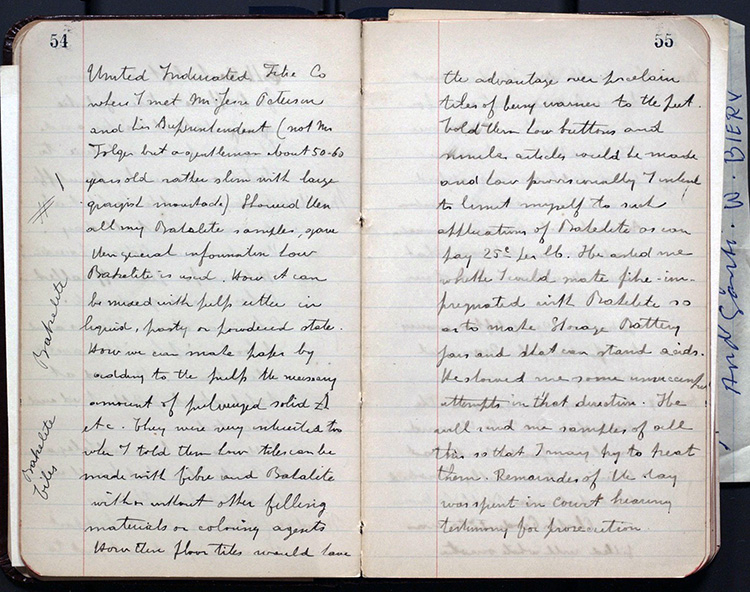 54
United Indurated Fibre Co
where I met Mr. Jesse Peterson
and his Superintendent (not Mr
Tolger but a gentleman about 50-60
years old rather slim with large
grayish moustache) Showed them
all my Bakalite samples, gave
them general information how
Bakelite is used. How it can
be mixed with pulp either in
liquid, pasty or powdered state.
How we can make paper by
adding to the pulp the necessary
amount of pulverized solid A
etc. They were very interested too
when I told them how tiles can be
made with fibre and Bakalite
with or without other filling
materials or coloring agents
How these floor tiles would have
# 1
Bakelite
Bakelite
tiles
55
the advantage over porcelain
tiles of being warmer to the feet.
Told them how buttons and
similar articles could be made
and how provisionally I intend
to limit myself to such
applications of Bakelite as can
pay 25c per lb. He asked me
whether I could make fibre im-
pregnated with Bakelite so
as to make Storage Battery
jars and that can stand acids.
He showed me some unsuccessful
attempts in that direction. He
will send me samples of all
this so that I may try to treat
them. Remainder of the day
was spent in court hearing
testimony for prosecution.
W. BIERY